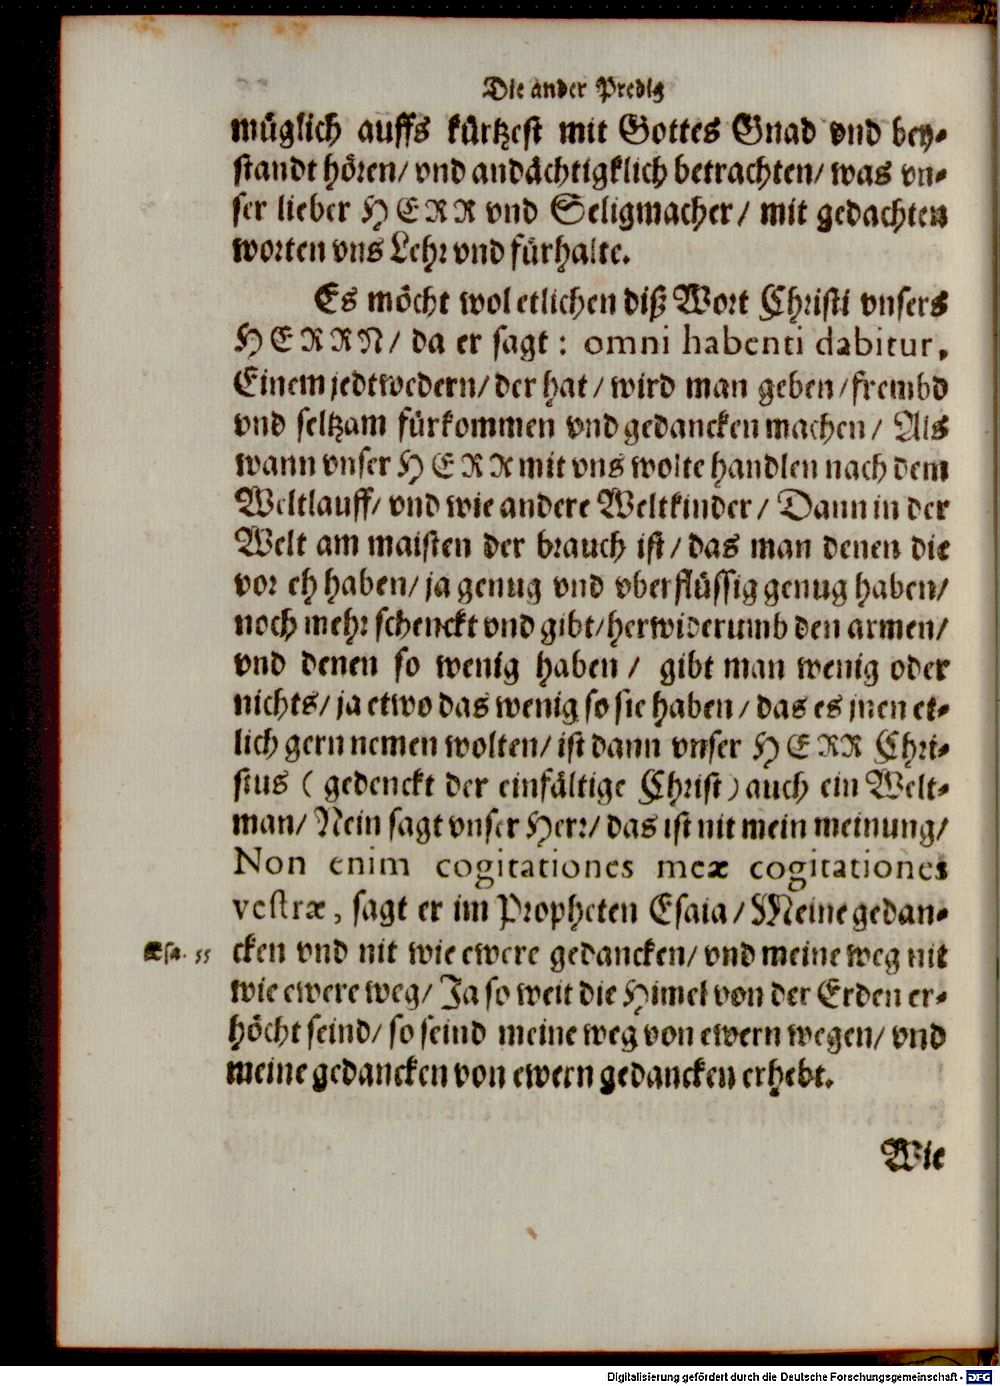 Die ander Predig
müglich auffs kürtzest mit Gottes Gnad vnd bey-
standt hören/ vnd andächtigklich betrachten/ was vn-
ser lieber HERR vnd Seligmacher/ mit gedachten
worten vns Lehr vnd fürhalte.
Es möcht wol etlichen diß Wort Christi vnsers
HERRN/ da er sagt: omni habenti dabitur,
Einem jedtwedern/ der hat/ wird man geben/ frembd
vnd seltzam fürkommen vnd gedancken machen/ Als
wann vnser HERR mit vns wolte handlen nach dem
Weltlauff/ vnd wie andere Weltkinder/ Dann in der
Welt am maisten der brauch ist/ das man denen die
vor eh haben/ ja genug vnd vberflüssig genug haben/
noch mehr schenckt vnd gibt/ herwiderumb den armen/
vnd denen so wenig haben/ gibt man wenig oder
nichts/ ja etwo das wenig so sie haben/ das es jnen et-
lich gern nemen wolten/ ist dann vnser HERR Chri-
stus (gedenckt der einfältige Christ) auch ein Welt-
man/ Nein sagt vnser Herr/ das ist nit mein meinung/
Non enim cogitationes meæ cogitationes
vestræ, sagt er im Propheten Esaia/ Meine gedan-
Esa. 55 cken vnd nit wie ewere gedancken/ vnd meine weg nit
wie ewere weg/ Ja so weit die Himel von der Erden er-
höcht seind/ so seind meine weg von ewern wegen/ vnd
meine gedancken von ewern gedancken erhebt.
Wie
Digitalisierung gefördert durch die Deutsche Forschungsgemeinschaft - DFG